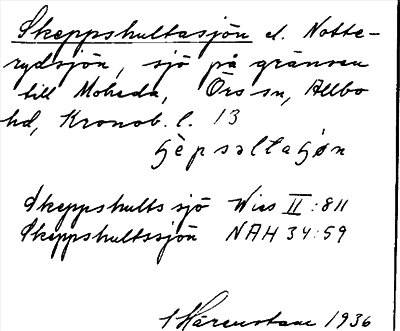 Skeppshultasjön el. Notte-
rydsjön, sjö på gränsen
till Moheda, Örs sn, Allbo
hd, Kronob. l. 13
Skeppshults sjö Wies II:811
Skeppshultssjön NAH 34:59
1936